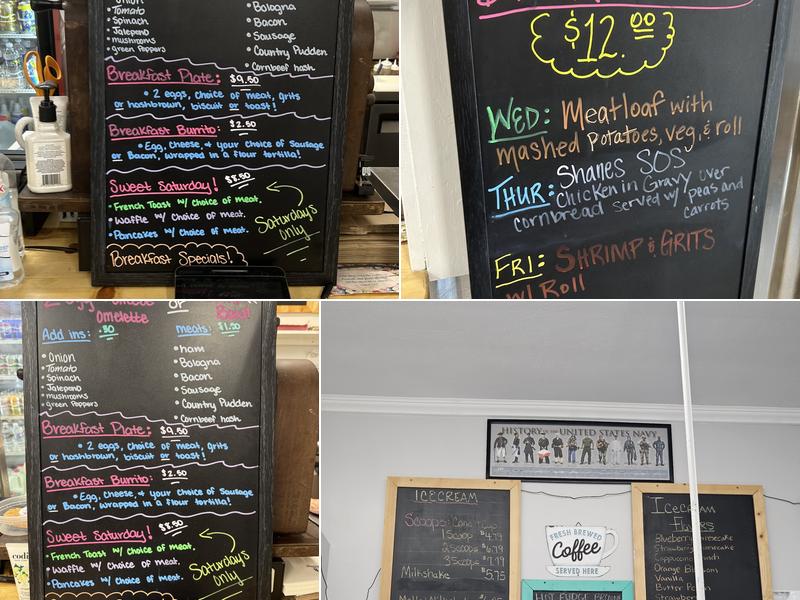 Onion
Tomato
Spinach
Jalepeno
mushrooms
green Peppers
Bologna
Bacon
Sausage
Country Pudden
Cornbeef hash
Breakfast Plate: $9.50
2 eggs, choice of meat, grits
or hashbrown, biscuit or toast!
Breakfast Burrito: $2.50
Egg, cheese, & your choice of Sausage
or Bacon, wrapped in a flour tortilla!
Sweet Saturday! $8.50
French Toast w/ choice of meat.
Waffle w/ choice of meat.
Pancakes w/ choice of meat.
Saturdays
only
Breakfast Specials!
$12.00
WED: Meatloaf with
mashed potatoes, veg, & roll
THUR: Shanes SOS
chicken in Gravy over
cornbread served w/ peas and
carrots
FRI: SHRIMP & GRITS
w/ Roll
Omelette
or
Add ins: .80
Onion
Tomato
Spinach
Jalepeno
mushrooms
green Peppers
meats: $1.50
ham
Bologna
Bacon
Sausage
Country Pudden
Cornbeef hash
Breakfast Plate: $9.50
2 eggs, choice of meat, grits
or hashbrown, biscuit or toast!
Breakfast Burrito: $2.50
Egg, cheese, & your choice of Sausage
or Bacon, wrapped in a flour tortilla!
Sweet Saturday! $8.50
French Toast w/ choice of meat.
Waffle w/ choice of meat.
Pancakes w/ choice of meat.
Saturdays
only
HISTORY OF THE UNITED STATES NAVY
ICECREAM
Scoops:
1 Scoop $4.79
2 Scoops
3 Scoops
Milkshake $5.75
FRESH BREWED
Coffee
SERVED HERE
HOT FUDGE BROWNIE
Icecream
Flavors
Blueberry Cheesecake
Strawberry Cheesecake
Orange Blossom
Vanilla
Butter Pecan
Strawberry